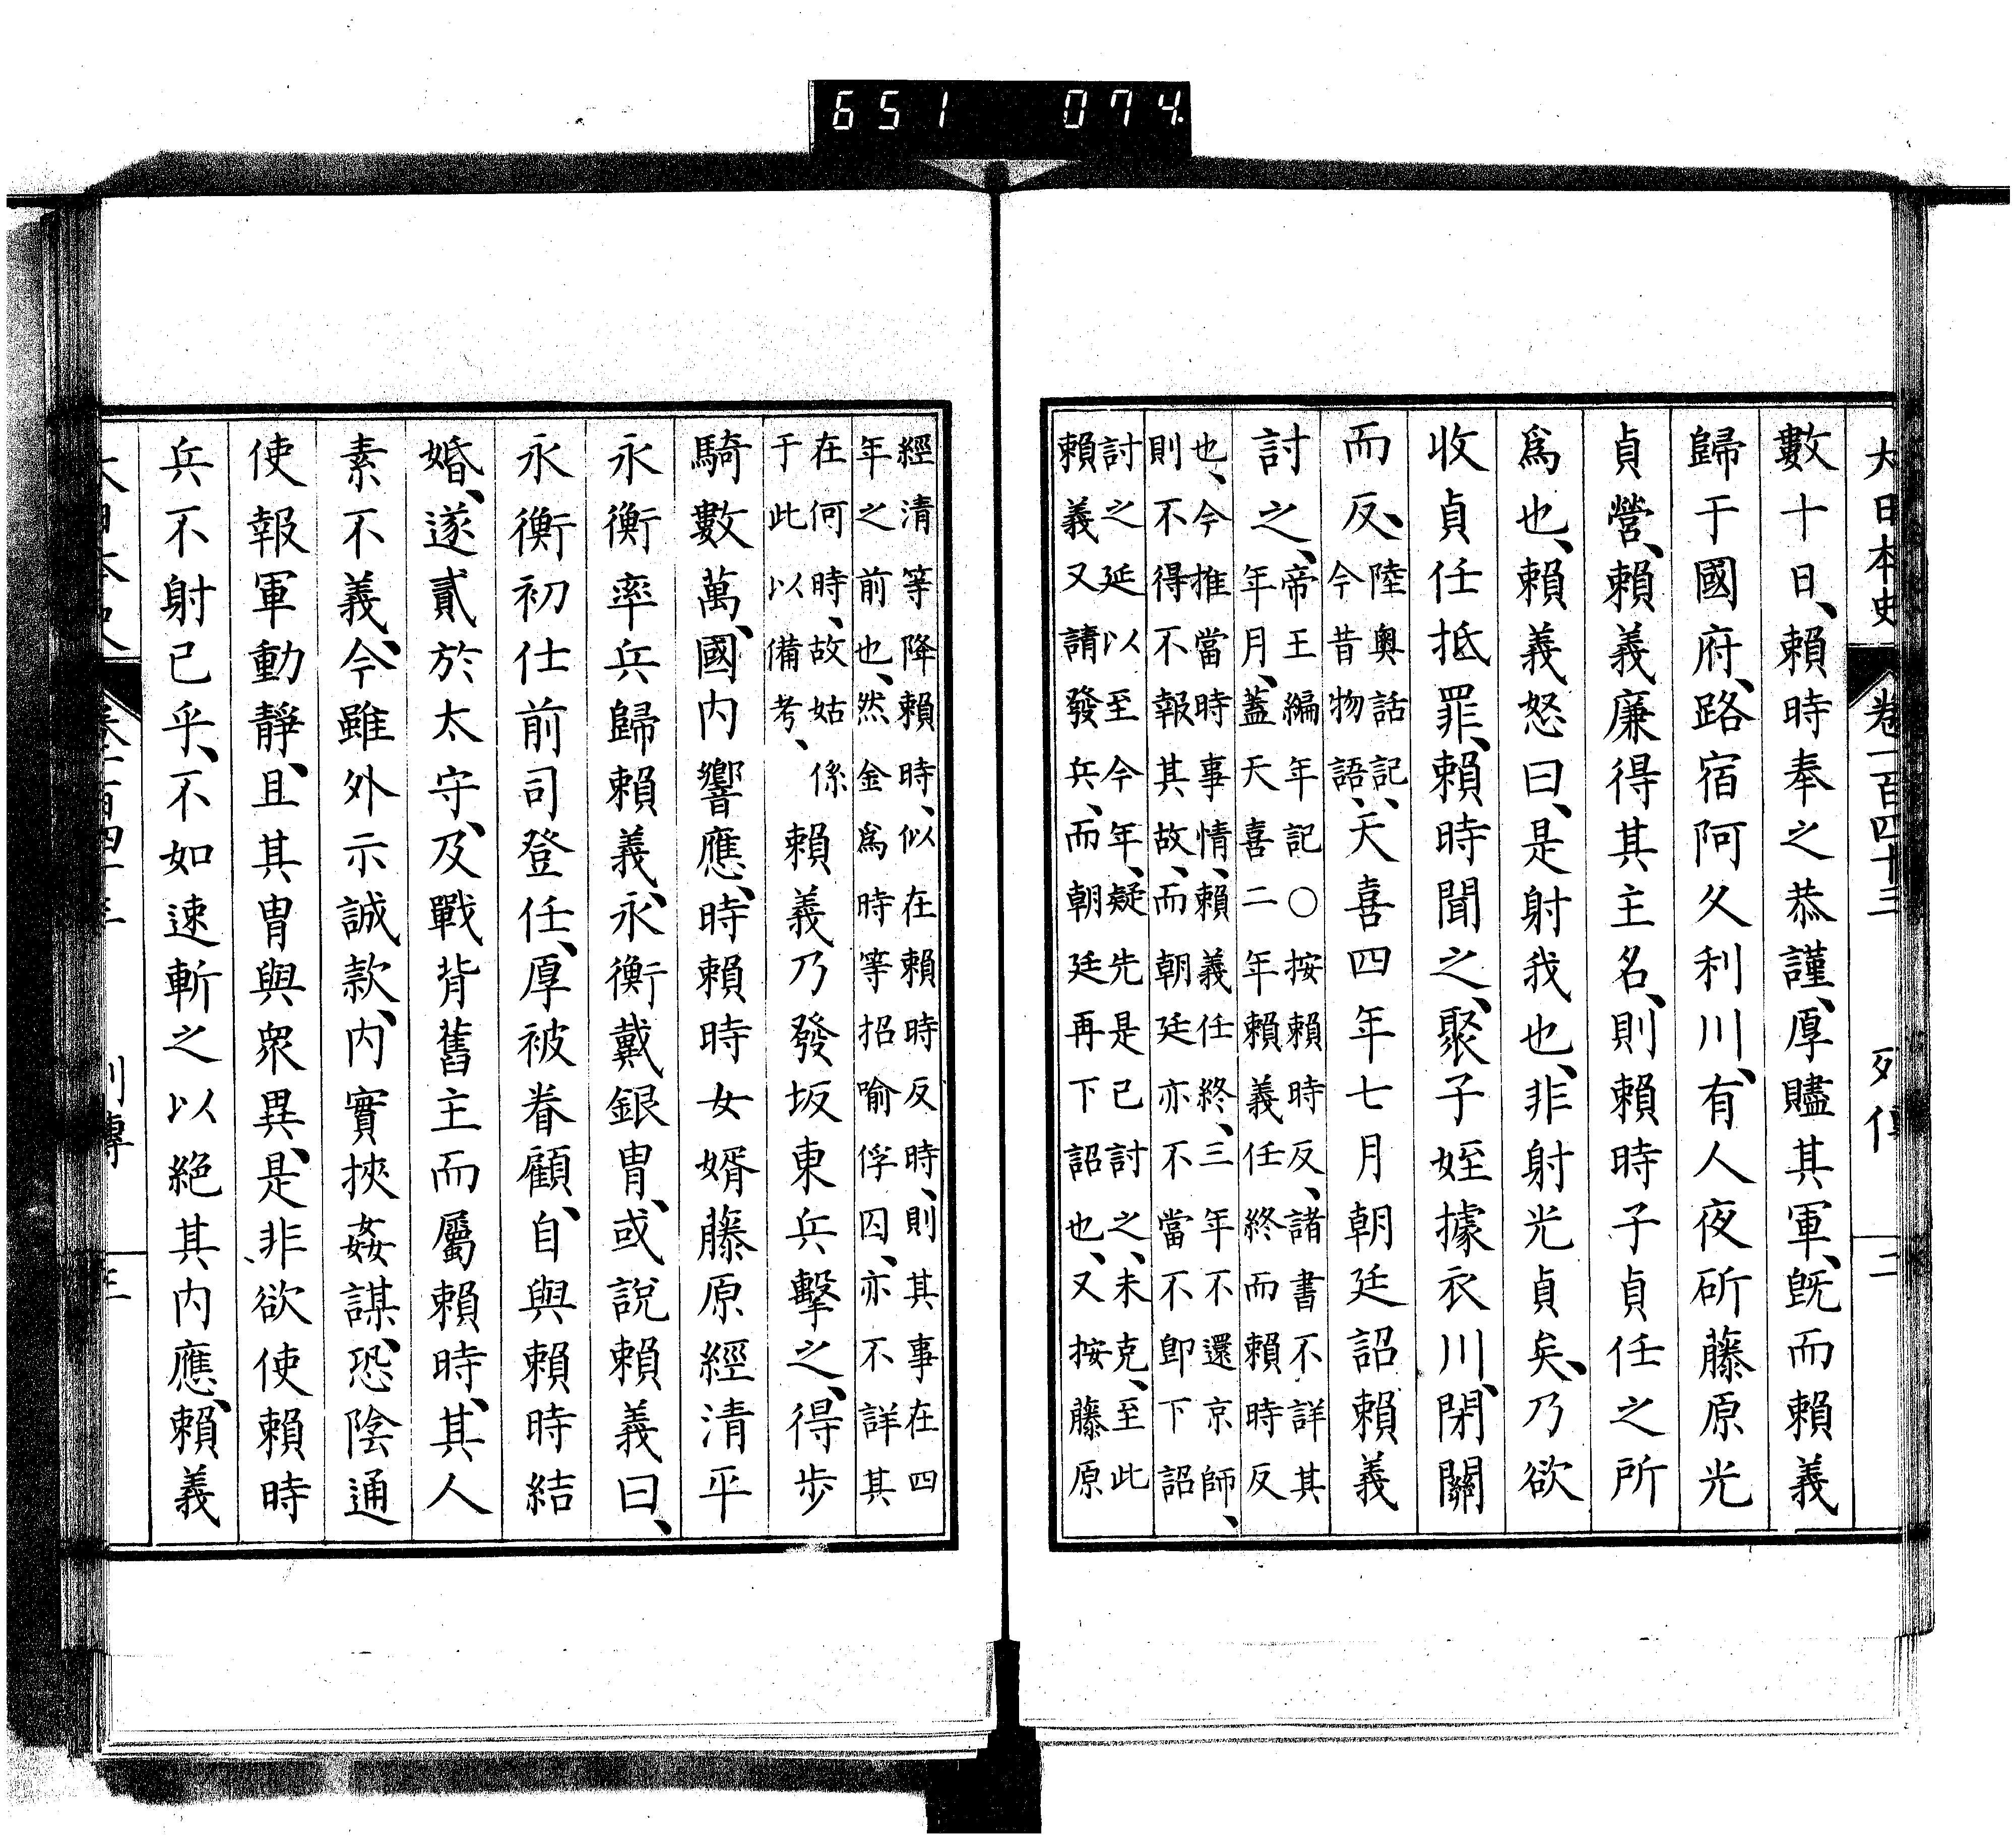 651 074.
大日本史 卷一百四十三 列傳 二
數十日、賴時奉之恭謹、厚贐其軍、旣而賴義
歸于國府、路宿阿久利川、有人夜斫藤原光
貞營、賴義廉得其主名、則賴時子貞任之所
爲也、賴義怒曰、是射我也、非射光貞矣、乃欲
收貞任抵罪、賴時聞之、聚子姪據衣川、閉關
而反、陸奧話記、
今昔物語、天喜四年七月朝廷詔賴義
討之、帝王編年記○按賴時反、諸書不詳其
年月、蓋天喜二年賴義任終而賴時反
也、今推當時事情、賴義任終、三年不還京師、
則不得不報其故、而朝廷亦不當不卽下詔
討之延以至今年、疑先是已討之、未克、至此
賴義又請發兵、而朝廷再下詔也、又按藤原
經清等降賴時、似在賴時反時、則其事在四
年之前也、然金爲時等招喻俘囚、亦不詳其
在何時、故姑係
于此以備考、賴義乃發坂東兵擊之、得步
騎數萬、國內響應、時賴時女婿藤原經清平
永衡率兵歸賴義、永衡戴銀冑、或說賴義曰、
永衡初仕前司登任、厚被眷顧、自與賴時結
婚、遂貳於太守、及戰背舊主而屬賴時、其人
素不義、今雖外示誠款、內實挾姦謀、恐陰通
使報軍動靜、且其冑與衆異、是非欲使賴時
兵不射已乎、不如速斬之以絕其內應、賴義
大日本史 卷一百四十三 列傳 三